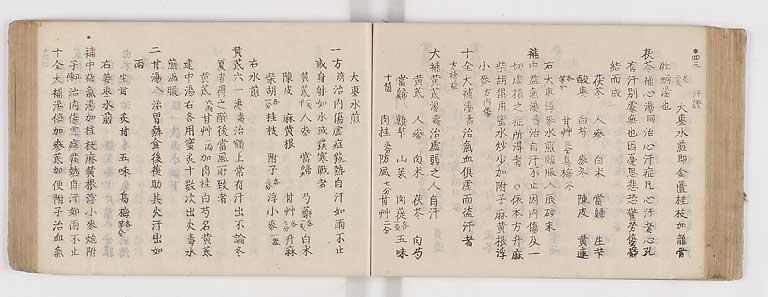 汗證
大棗水煎即金匱桂枝加龍骨
牡蛎湯也
茯苓補心湯 治心汗症凡心汗者心孔
有汗別處無也因憂思悲恐驚勞傷鬱
結而成
茯苓 人參 白朮 當歸 生芐
酸棗 白芍 麥冬 陳皮 黃連
右大棗浮麥水煎臨服入辰砂末
補中益氣湯 治自汗不止因內傷及一
切虛損之症所得者○依本方升麻
柴胡俱用蜜水炒少加附子麻黃根浮
小麥
十全大補湯 治氣血俱虛而盜汗者
大補黃芪湯 治虛弱之人自汗
黃芪 人參 白朮 茯苓 白芍
當歸 熟芐 山茱 肉蓯 五味
肉桂 防風 甘草
大棗水煎
一方 治內傷虛症發熱自汗如雨不止
或身冷如水或發寒戰者
黃芪 人參 當歸 芍藥 白朮
陳皮 麻黃根 甘草 升麻
柴胡 桂枝 附子 浮小麥
右水煎
黃芪六一湯 治額上常有汗出不論冬
夏有得之醉後當風而致者
黃芪 甘草 加肉桂白芍名黃芪
建中湯右各用蜜炙十數次出火毒水
煎溫服
二甘湯 治胃熱食後復助其火汗出如
雨
生甘 炙甘 五味 烏梅
右薑棗水煎
補中益氣湯加桂枝麻黃根浮小麥炮附
子 治內傷虛症發熱自汗如雨不止
十全大補湯倍加參芪加便附子治血氣